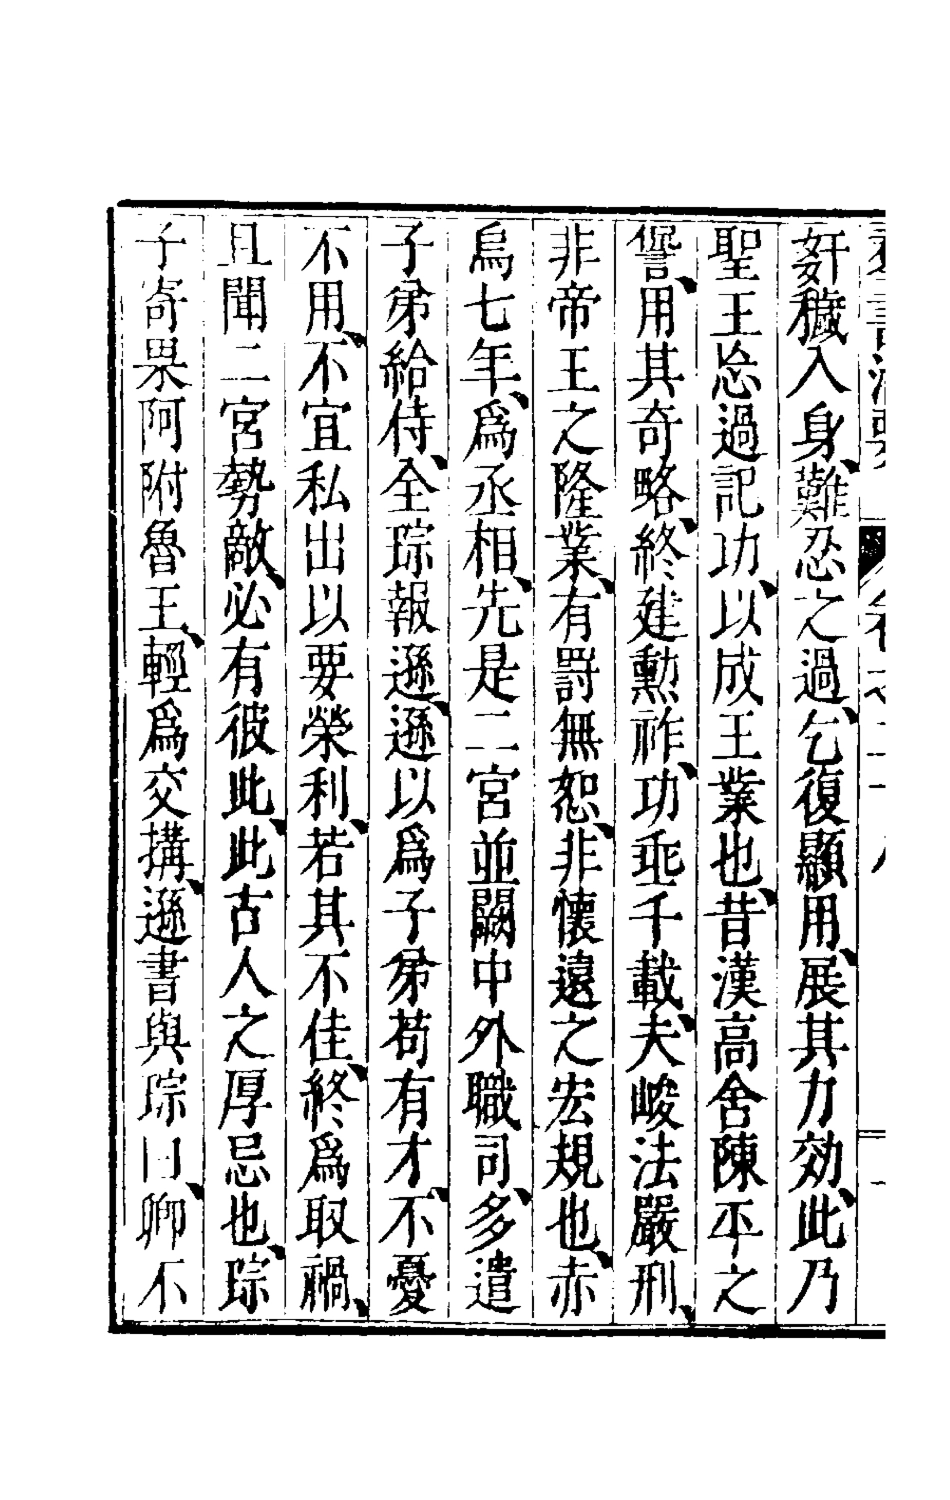 姧穢入身、難忍之過、乞復顯用、展其力効、此乃
聖王忩過記功、以成王業也、昔漢高舍陳平之
諐、用其奇略、終建勲祚、功乖千載、夫峻法嚴刑、
非帝王之隆業、有罰無恕、非懷遠之宏規也、赤
烏七年、爲丞相、先是二宮並闕中外職司、多遣
子弟給侍、全琮報遜、遜以爲子弟苟有才、不憂
不用、不宜私出以要榮利、若其不佳、終爲取禍、
且聞二宮勢敵、必有彼此、此古人之厚忌也、琮
子寄果阿附魯王、輕爲交搆、遜書與琮曰、卿不